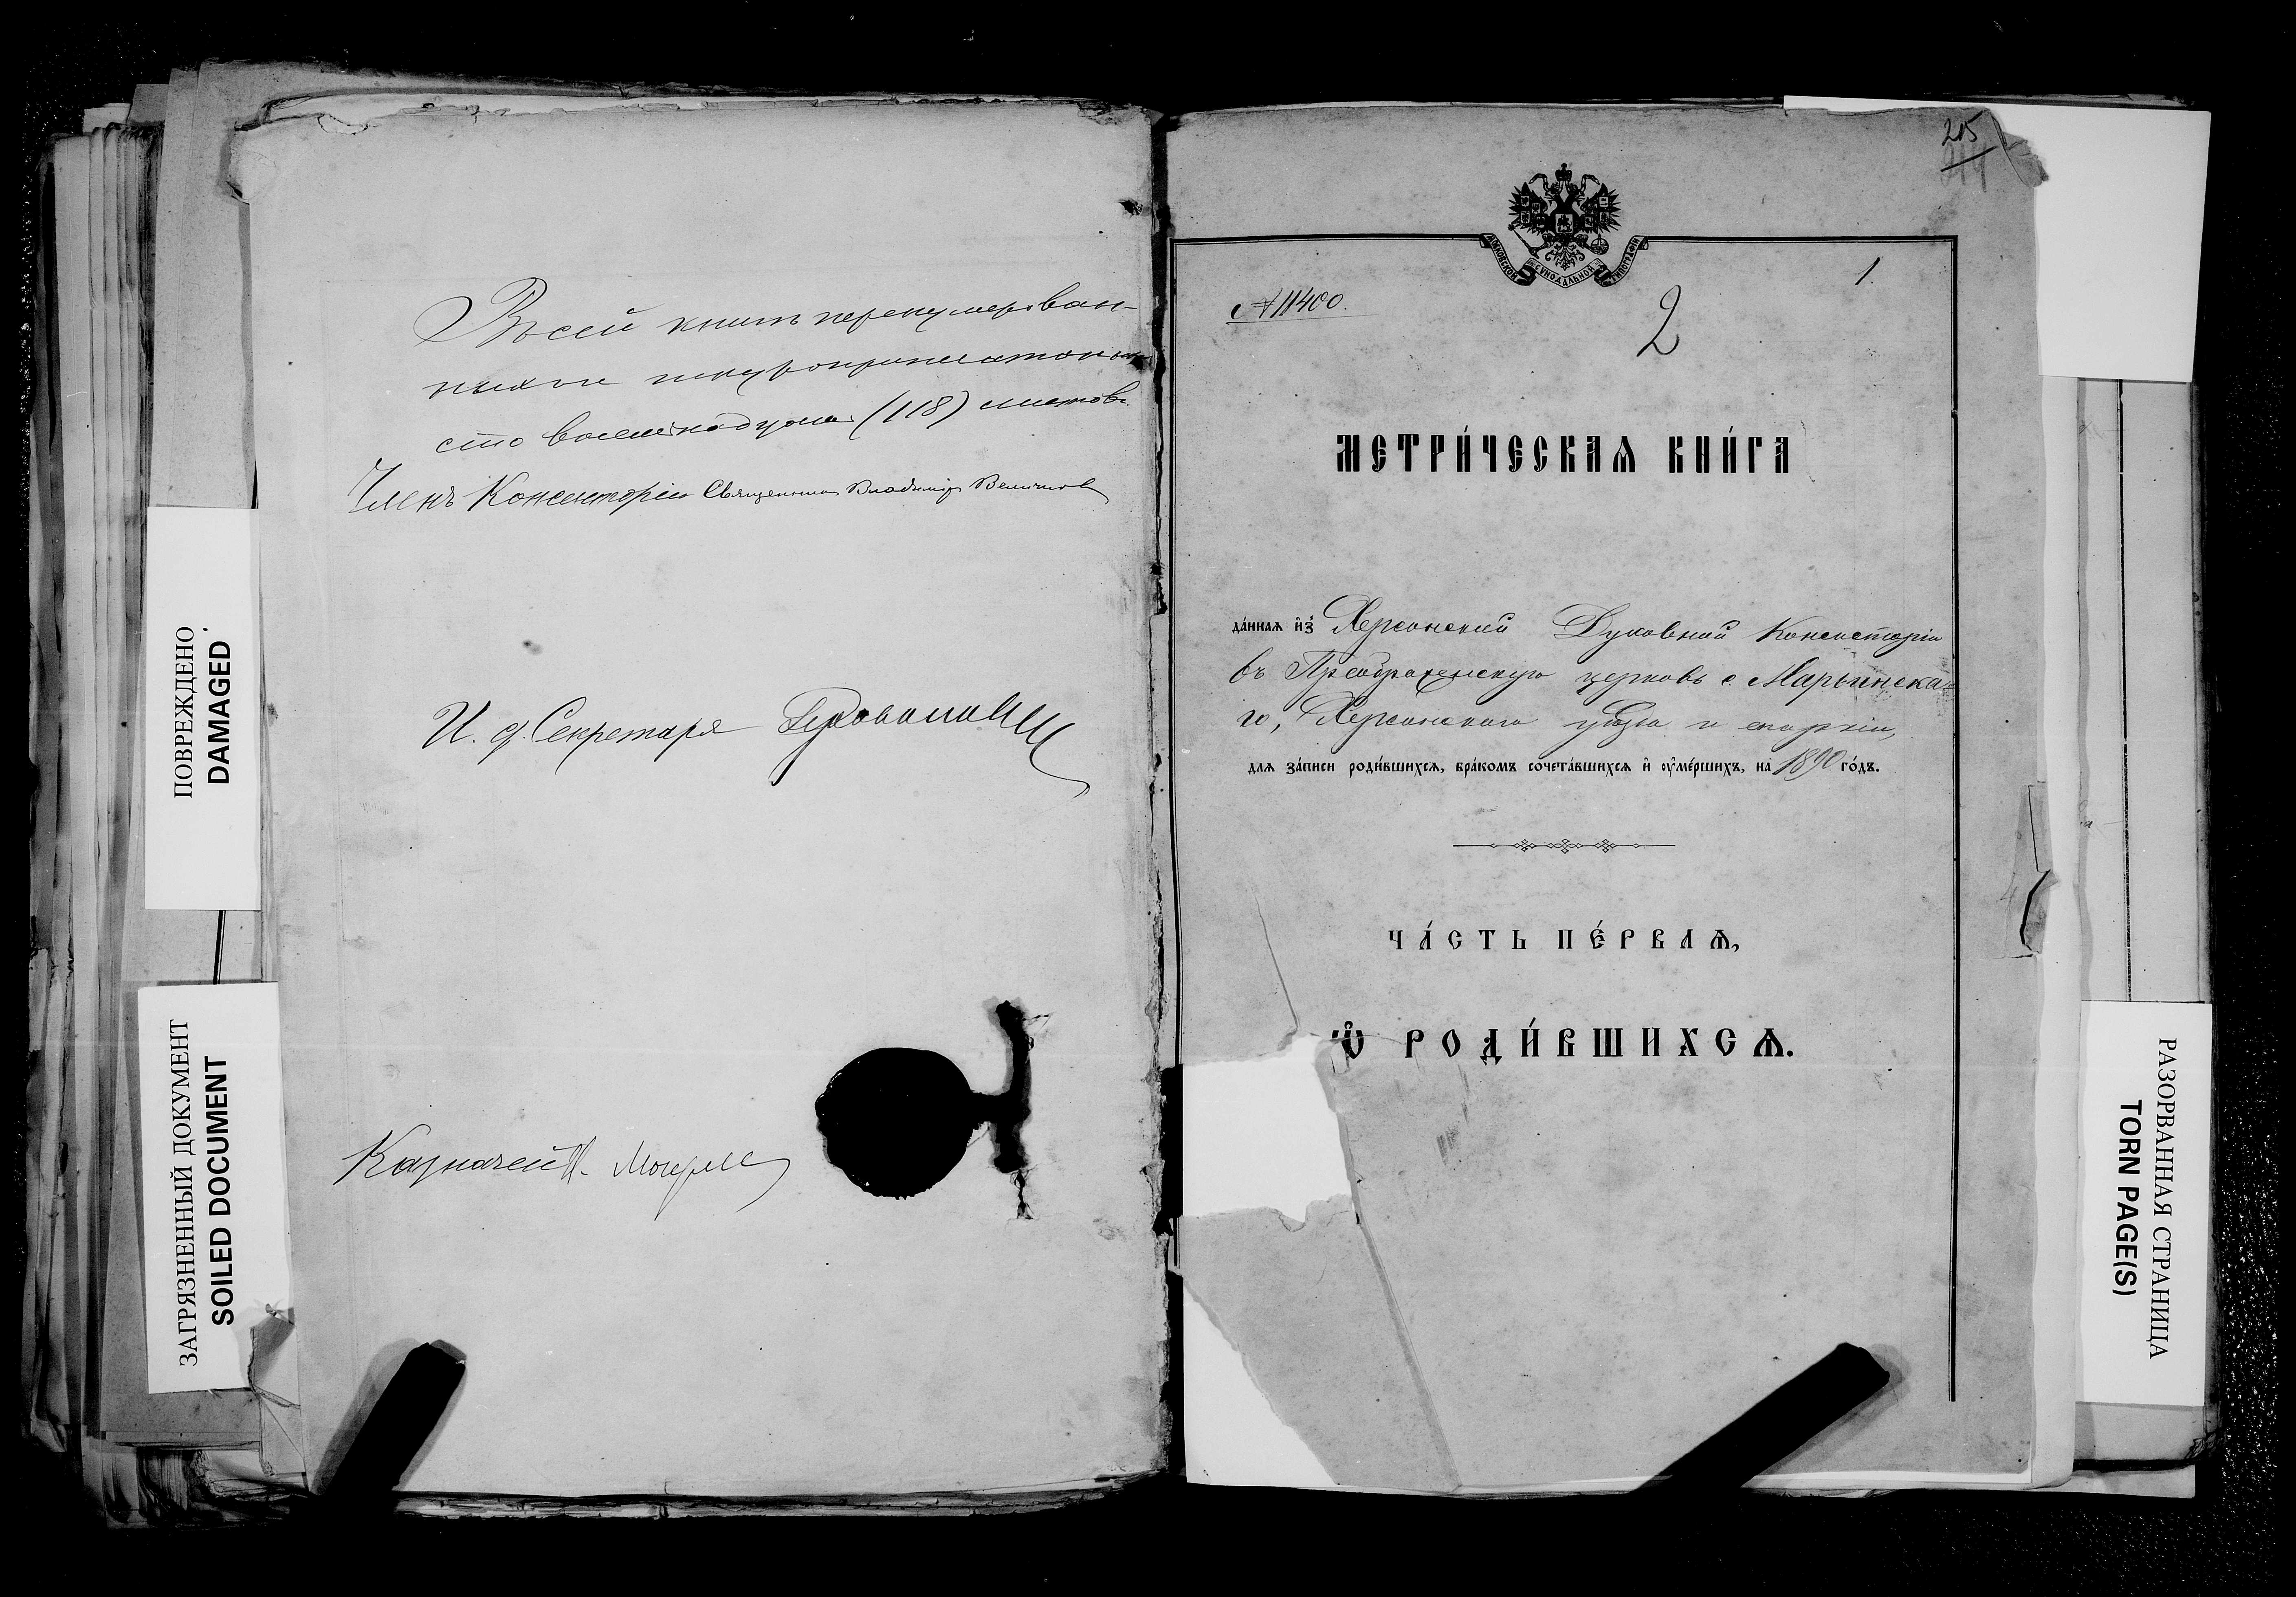 Въ сей книгѣ перенумерован-
ныхъ и шнуроприпечатанныхъ
сто восемнадцать (118) листовъ.
Членъ Консисторіи Священникъ Владиміръ
И. д. Секретаря
Казначей
ПОВРЕЖДЕНО
DAMAGED
ЗАГРЯЗНЕННЫЙ ДОКУМЕНТ
SOILED DOCUMENT
215
МОСКОВСКОЙ СѴНОДАЛЬНОЙ ТИПОГРАФІИ
1.
№ 11400.
2
МЕТРИ́ЧЕСКАѦ КНИ́ГА
да́ннаѧ и҆з̾ Херсонской Духовной Консисторіи
въ Преображенскую церковь с. Марьинска-
го, Херсонского уѣзда и епархіи,
для за́писи роди́вшихсѧ, бра́комъ сочета́вшихсѧ и҆ ѹ҆ме́ршихъ, на 1890 го́дъ.
ЧА́СТЬ ПЕ́РВАѦ,
Ѽ РОДИ́ВШИХСѦ.
РАЗОРВАННАЯ СТРАНИЦА
TORN PAGE(S)